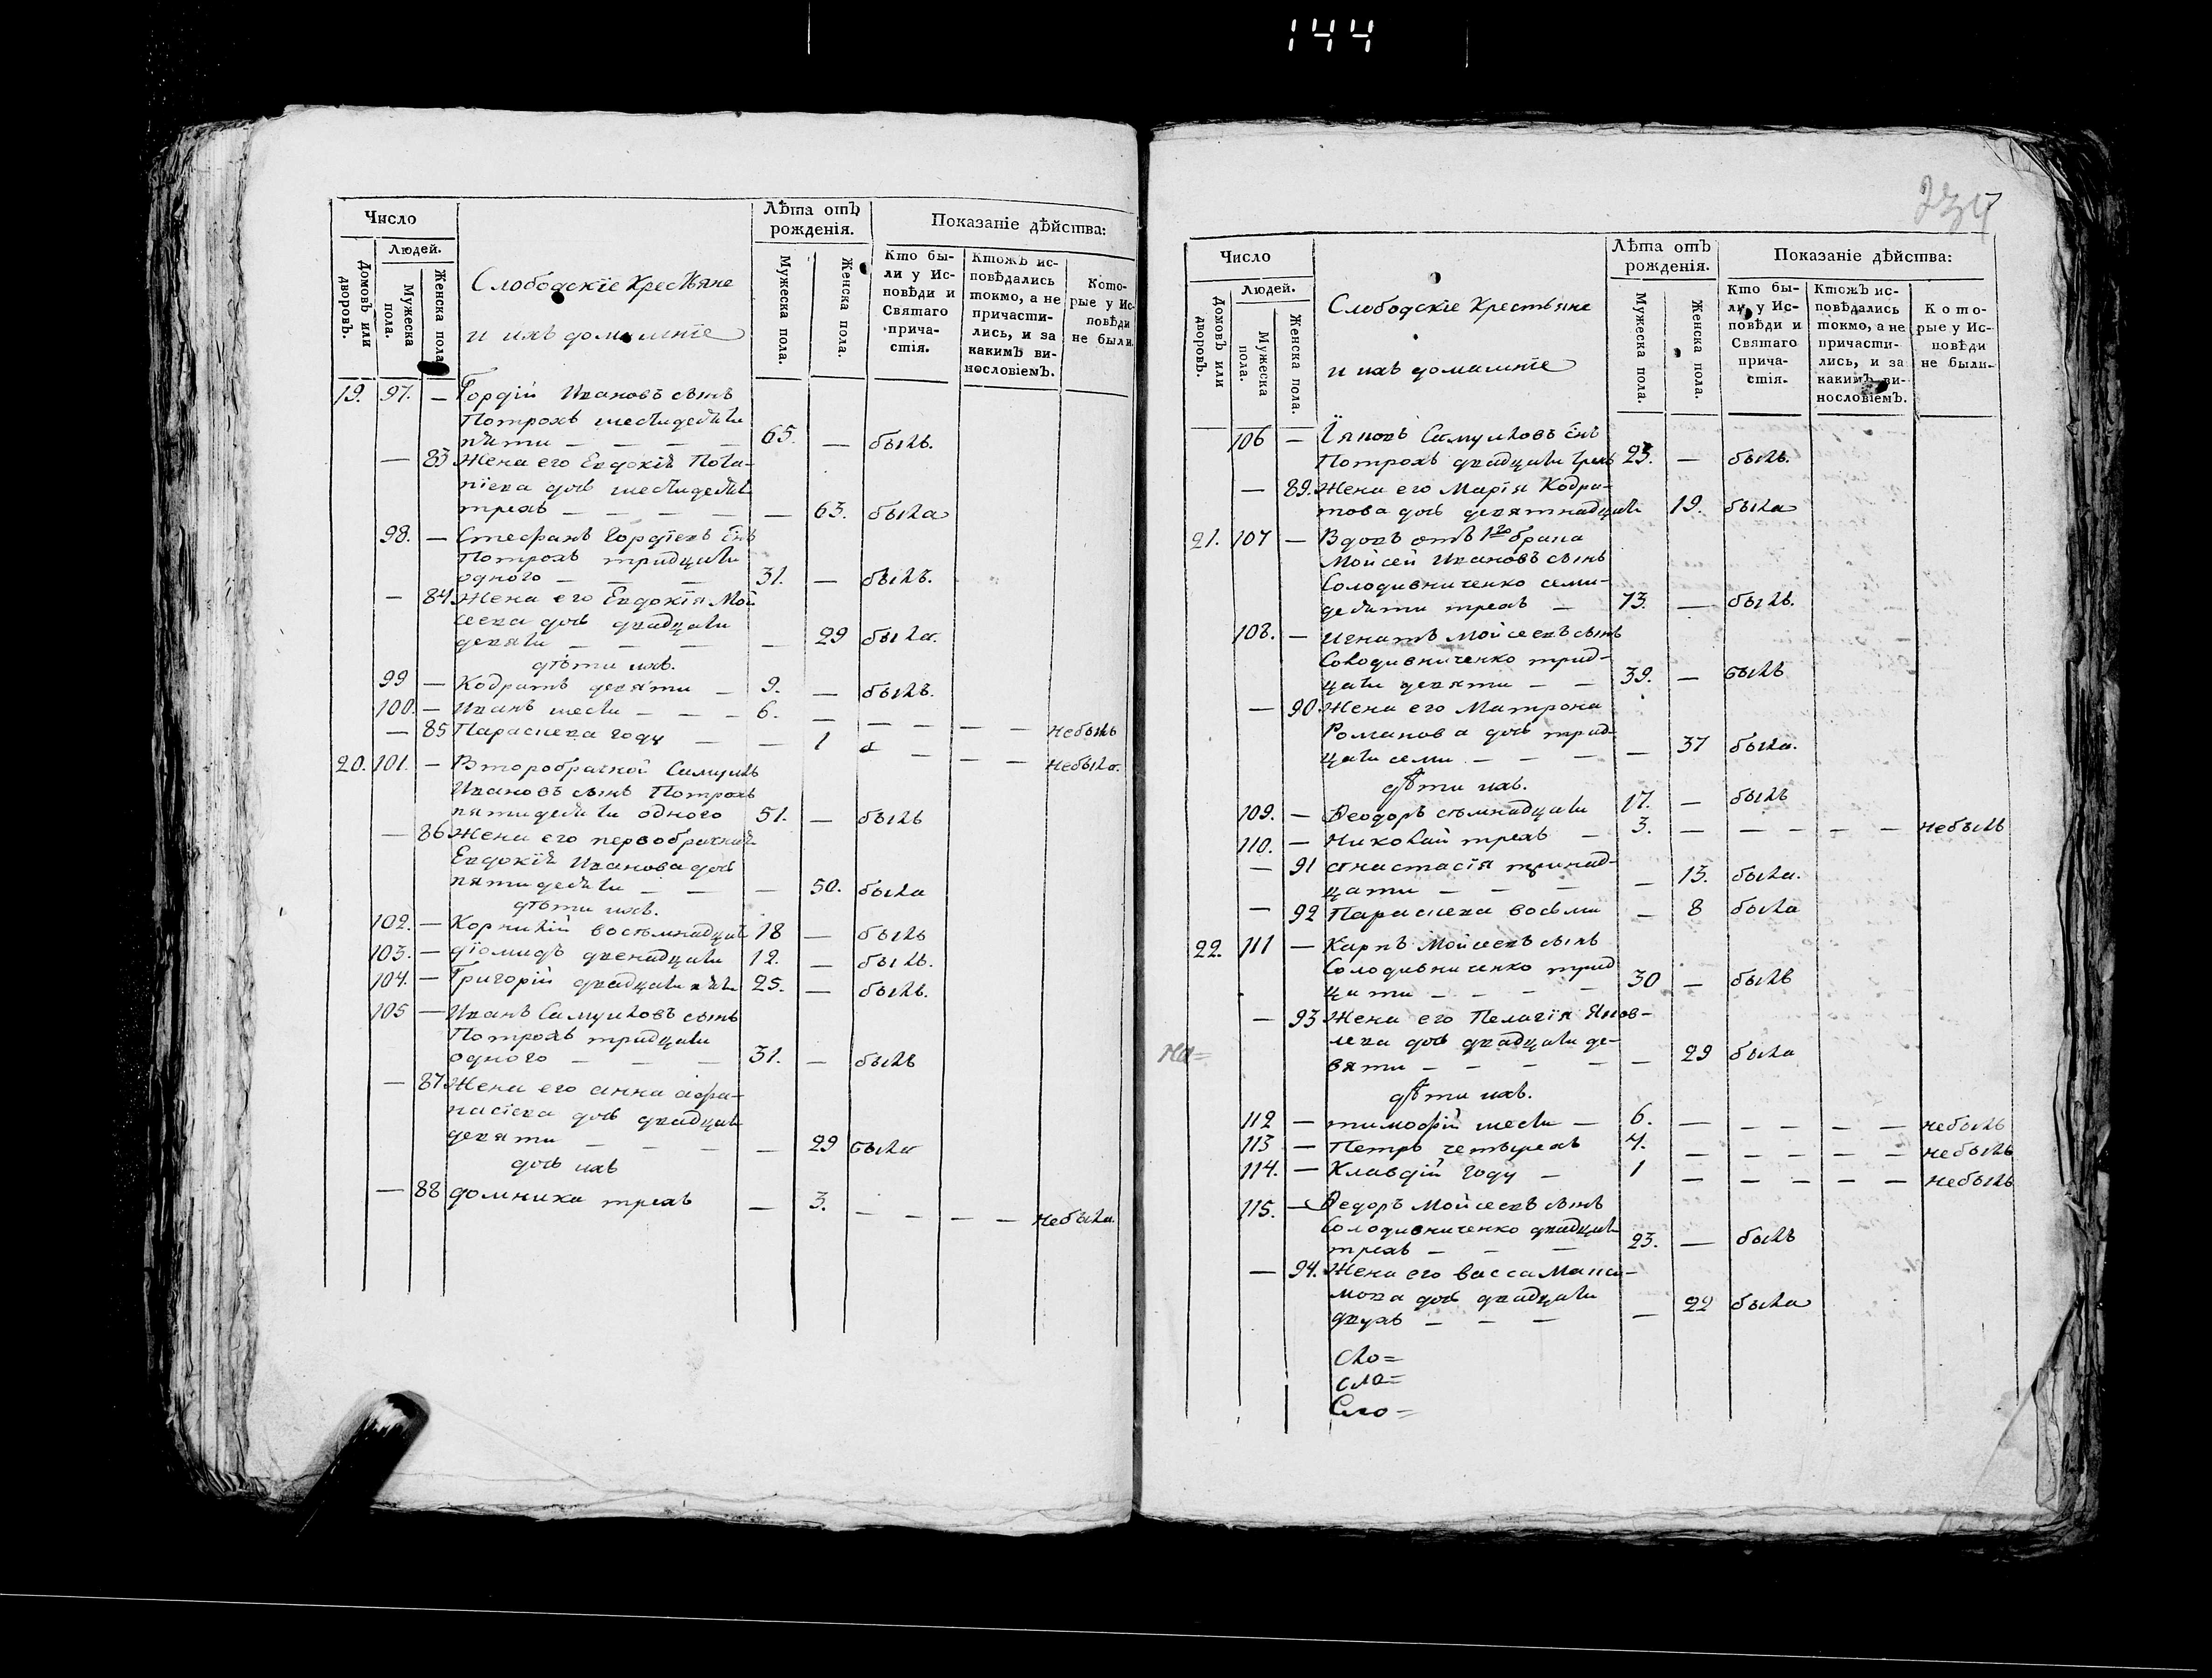 144
Число
Людей.
Домовъ или дворовъ.
Мужеска пола.
Женска пола.
Слободскіе Крестьяне
и ихъ домашніе
Лѣта отъ рожденія.
Мужеска пола.
Женска пола.
Показаніе дѣйства:
Кто были у Исповѣди и Святаго причастія.
Ктожъ исповѣдались токмо, а не причастились, и за какимъ винословіемъ.
Которые у Исповѣди не были.
19. 97. — Гордій Ивановъ сынъ
Потрохъ шестидесяти
пяти — — — — 65. — былъ.
— 83 Жена его Евдокія Пота-
піева дочь шестидесяти
трехъ — — — — — 63. была
98. — Стефанъ Гордіевъ снъ
Потрохъ тридцати
одного — — — 31. — былъ.
— 84 Жена его Евдокія Мой
сеева дочь двадцати
девяти — — — — 29 была.
дѣти ихъ.
99 — Кодратъ девяти — 9. — былъ.
100. — Иванъ шести — — — 6. — — — — — небылъ
— 85 Параскева году — — 1 — — — небыла.
20. 101. — Второбрачной Самуилъ
Ивановъ сынъ Потрохъ
пятидесяти одного 51. — былъ
— 86 Жена его первобрачная
Евдокія Иванова дочь
пятидесяти — — — 50. была
дѣти ихъ.
102. — Корнилій восемнадцати 18 — былъ
103. — Діомидъ двенадцати 12. — былъ.
104. — Григорій двадцати пяти 25. — былъ.
105 — Иванъ Самуиловъ сынъ
Потрохъ тридцати
одного — — — 31. — былъ
— 87 Жена его анна афа-
насіева дочь двадцати
девяти — — — — 29 была
дочь ихъ
— 88 домникія трехъ — 3. — — — — небыла.
234
Число
Людей.
Домовъ или дворовъ.
Мужеска пола.
Женска пола.
Слободскіе Крестьяне
и ихъ домашніе
Лѣта отъ рожденія.
Мужеска пола.
Женска пола.
Показаніе дѣйства:
Кто были у Исповѣди и Святаго причастія.
Ктожъ исповѣдались токмо, а не причастились, и за какимъ винословіемъ.
Которые у Исповѣди не были.
106 — Самуиловъ снъ
Потрохъ двадцати трехъ 23. — былъ.
— 89. Жена его Марія Кодра-
това дочь девятнадцати 19. была
21. 107 — Вдовъ отъ 1го брака
Мойсей Ивановъ сынъ
Солодивниченко семи-
десяти трехъ — 73. — былъ.
108. — Игнатъ Мойсеевъ сынъ
Солодивниченко трид-
цати девяти — — 39. — былъ
— 90. Жена его Матрона
Романова дочь трид-
цати семи — — — — 37 была.
дѣти ихъ.
109. — Ѳеодоръ семнадцати 17. — былъ
110. — Николай трехъ — 3. — — — — — небылъ
— 91 анастасія тринад-
цати — — — — 13. была.
— 92 Параскева восьми — 8 была
22. 111 — Карпъ Мойсеевъ сынъ
Солодивниченко трид
цати — — — — 30 — былъ
— 93 Жена его Пелагія Яков-
лева дочь двадцати де-
вяти — — — — — 29 была
На=
дѣти ихъ.
112 — тимофій шести — 6. — — — — — небылъ
113 — Петръ четырехъ 4. — — — — — небылъ
114. — Клавдій году — 1 — — — — — небылъ
115. — Ѳедоръ Мойсеевъ сынъ
Солодивниченко двадцати
трехъ — — — 23. — былъ
— 94. Жена его Васса Макси-
мова дочь двадцати
двухъ — — — — 22 была
Сло=
сло=
Сло=